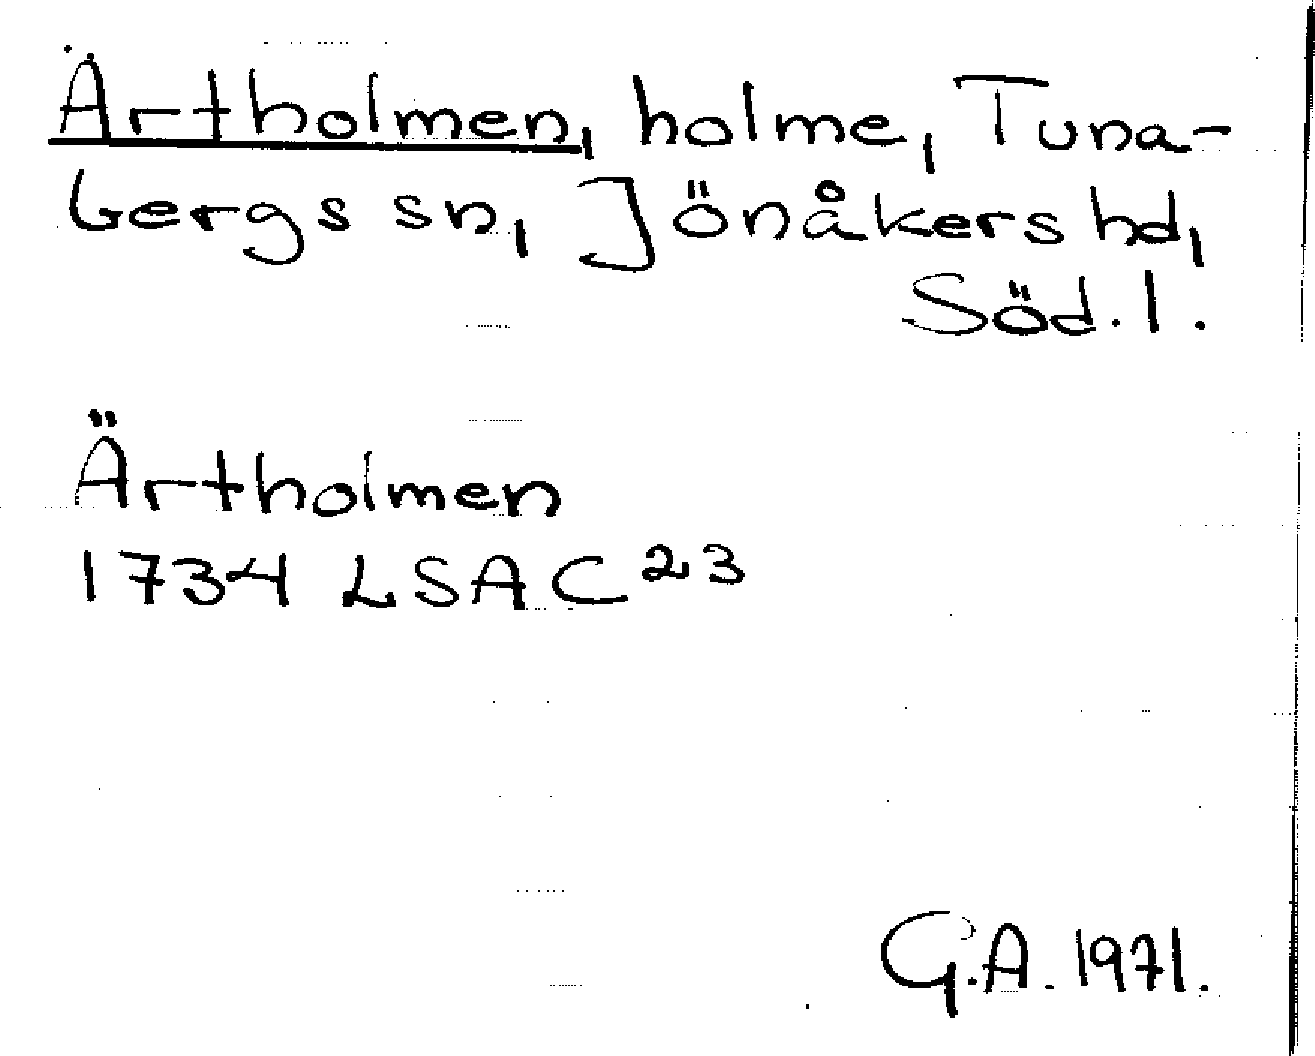 Ärtholmen, holme, Tuna-
bergs sn, Jönåkers hd,
Söd. l.
Ärtholmen
1734 LSA C 23
G.A. 1971.